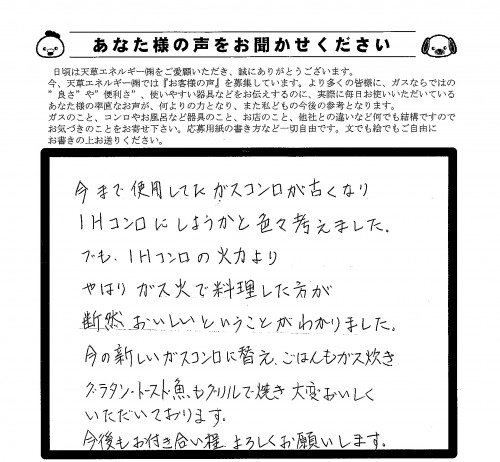 あなた様の声をお聞かせください
日頃は天草エネルギー㈱をご愛顧いただき、誠にありがとうございます。
今、天草エネルギー㈱では『お客様の声』を募集しています。より多くの皆様に、ガスならではの
"良さ"や"便利さ"、使いやすい器具などをお伝えするのに、実際に毎日お使いいただいている
あなた様の率直なお声が、何よりの力となり、また私どもの今後の参考となります。
ガスのこと、コンロやお風呂など器具のこと、お店のこと、他社との違いなど何でも結構ですので
お気づきのことをお寄せ下さい。応募用紙の書き方など一切自由です。文でも絵でもご自由に
お書きの上お送りください。
今まで使用してたガスコンロが古くなり
IHコンロにしようかと色々考えました。
でも、IHコンロの火力より
やはりガス火で料理した方が
断然おいしいということがわかりました。
今の新しいガスコンロに替え、ごはんもガス炊き
グラタン・トースト・魚、もグリルで焼き大変おいしく
いただいております。
今後もお付き合い程よろしくお願いします。